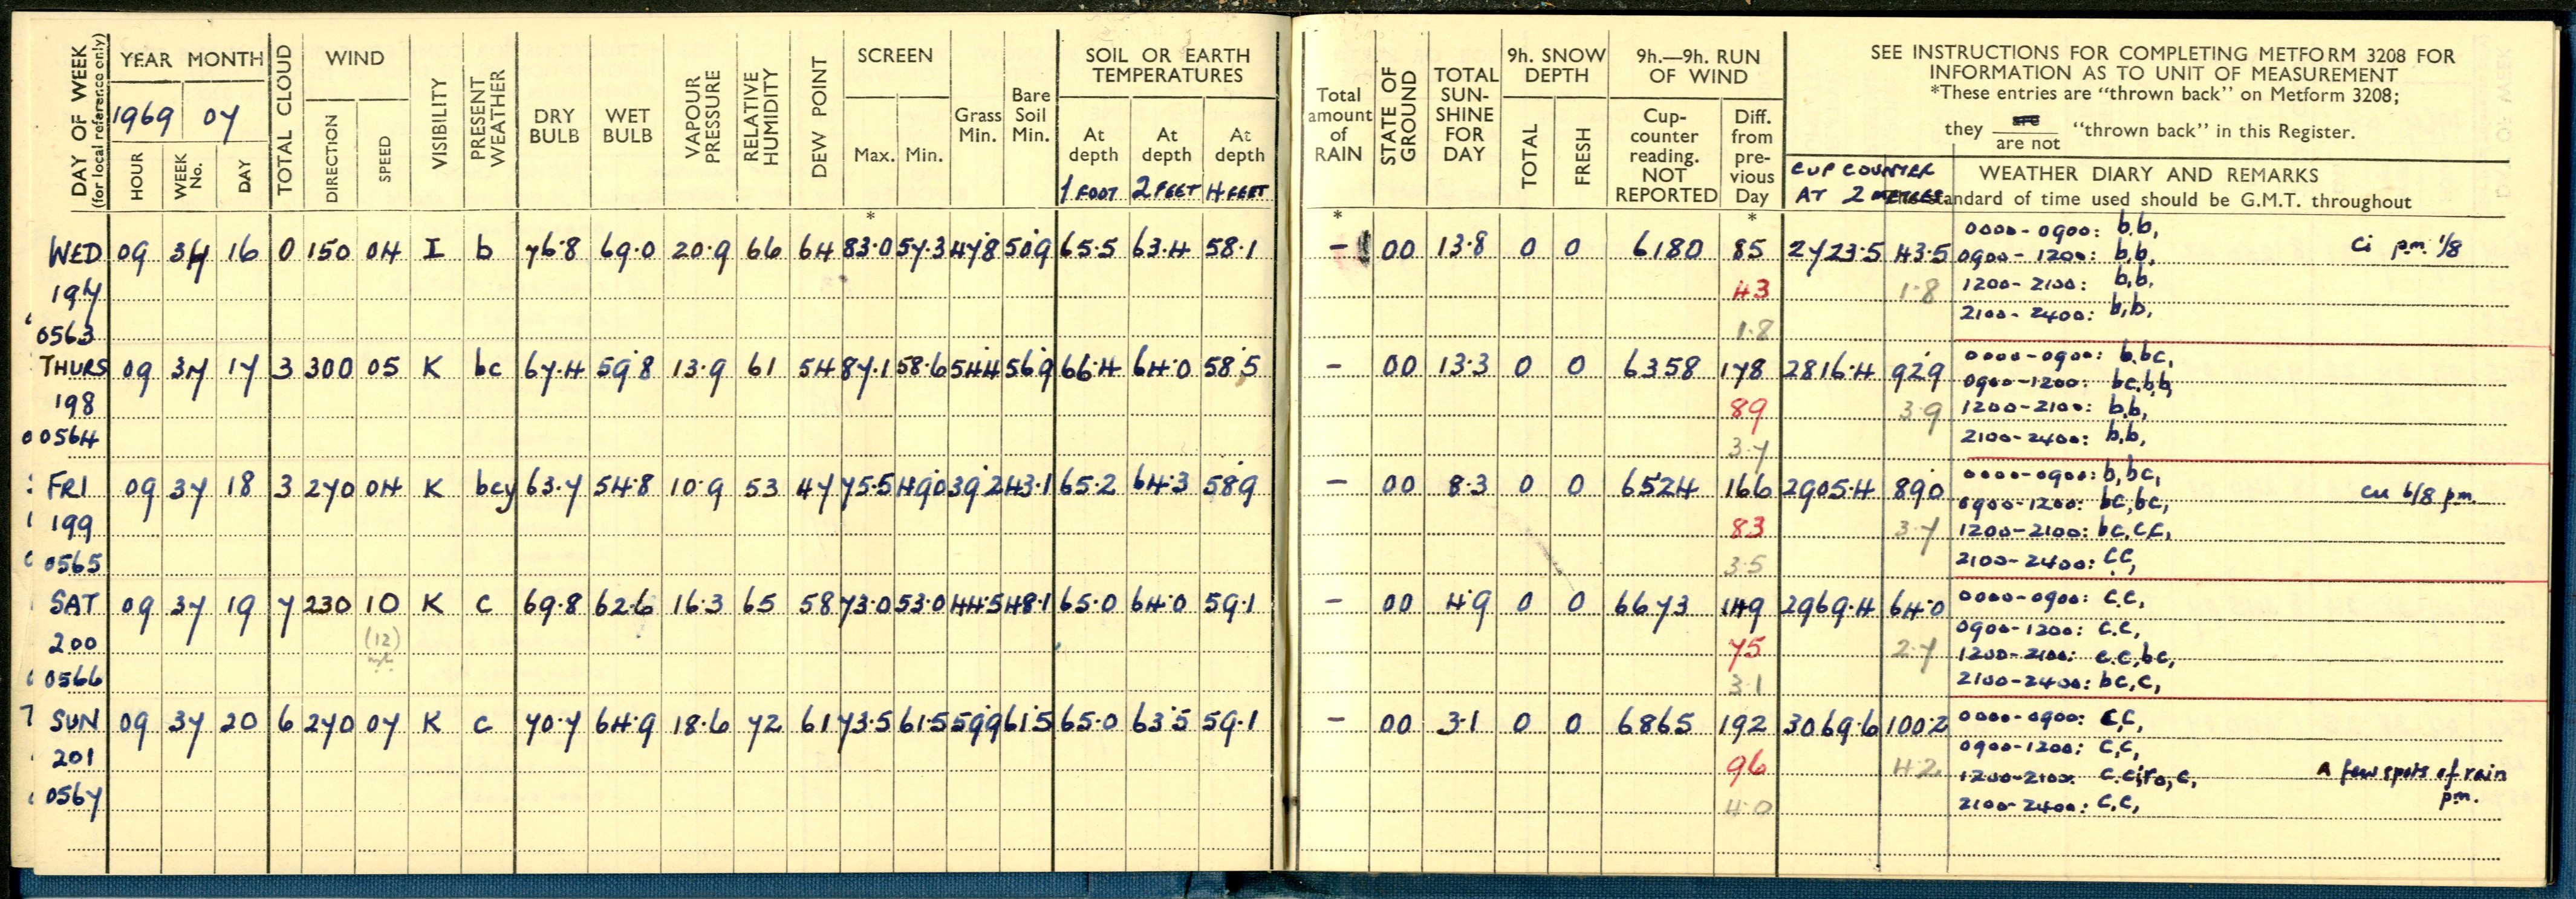 DAY OF WEEK (for local reference only)
YEAR MONTH
1969 07
HOUR WEEK No. DAY
TOTAL CLOUD
WIND
DIRECTION SPEED
VISIBILITY
PRESENT WEATHER
DRY BULB
WET BULB
VAPOUR PRESSURE
RELATIVE HUMIDITY
DEW POINT
SCREEN
Max. Min.
Grass Min.
Bare Soil Min.
SOIL OR EARTH TEMPERATURES
At depth At depth At depth
1 FOOT 2 FEET 4 FEET
Total amount of RAIN
STATE OF GROUND
TOTAL SUN-SHINE FOR DAY
9h. SNOW DEPTH
TOTAL FRESH
9h.—9h. RUN OF WIND
Cup-counter reading. NOT REPORTED
Diff. from pre-vious Day
SEE INSTRUCTIONS FOR COMPLETING METFORM 3208 FOR
INFORMATION AS TO UNIT OF MEASUREMENT
*These entries are "thrown back" on Metform 3208;
they are / are not "thrown back" in this Register.
CUP COUNTER AT 2 METRES
WEATHER DIARY AND REMARKS
standard of time used should be G.M.T. throughout
* * *
WED 09 37 16 0 150 04 I b 76.8 69.0 20.9 66 64 83.0 57.3 47.8 50.9 65.5 63.4 58.1 – 00 13.8 0 0 6180 85 2723.5 43.5 0000-0900: b.b,
0900-1200: b,b, Ci pm 1/8
197 43 1.8 1200-2100: b,b,
0563 1.8 2100-2400: b,b,
THURS 09 37 17 3 300 05 K bc 67.4 59.8 13.9 61 54 87.1 58.6 54.4 56.9 66.4 64.0 58.5 – 00 13.3 0 0 6358 178 2816.4 92.9 0000-0900: b.bc,
0900-1200: bc,b,b,
198 89 3.9 1200-2100: b,b,
0564 3.7 2100-2400: b,b,
FRI 09 37 18 3 270 04 K bcy 63.7 54.8 10.9 53 47 75.5 49.0 39.2 43.1 65.2 64.3 58.9 – 00 8.3 0 0 6524 166 2905.4 89.0 0000-0900: b,bc,
0900-1200: bc,bc, cu 6/8 pm.
199 83 3.7 1200-2100: bc,c,c,
0565 3.5 2100-2400: c,c,
SAT 09 37 19 7 230 10 K c 69.8 62.6 16.3 65 58 73.0 53.0 44.5 48.1 65.0 64.0 59.1 – 00 4.9 0 0 6673 149 2969.4 64.0 0000-0900: c.c,
(12) 0900-1200: c.c,
200 75 2.7 1200-2100: c.c,bc,
0566 3.1 2100-2400: bc,c,
SUN 09 37 20 6 270 07 K c 70.7 64.9 18.6 72 61 73.5 61.5 59.9 61.5 65.0 63.5 59.1 – 00 3.1 0 0 6865 192 3069.6 100.2 0000-0900: c,c,
0900-1200: c,c,
201 96 4.2 1200-2100: c.c,iro,c, A few spots of rain pm.
0567 4.0 2100-2400: c,c,